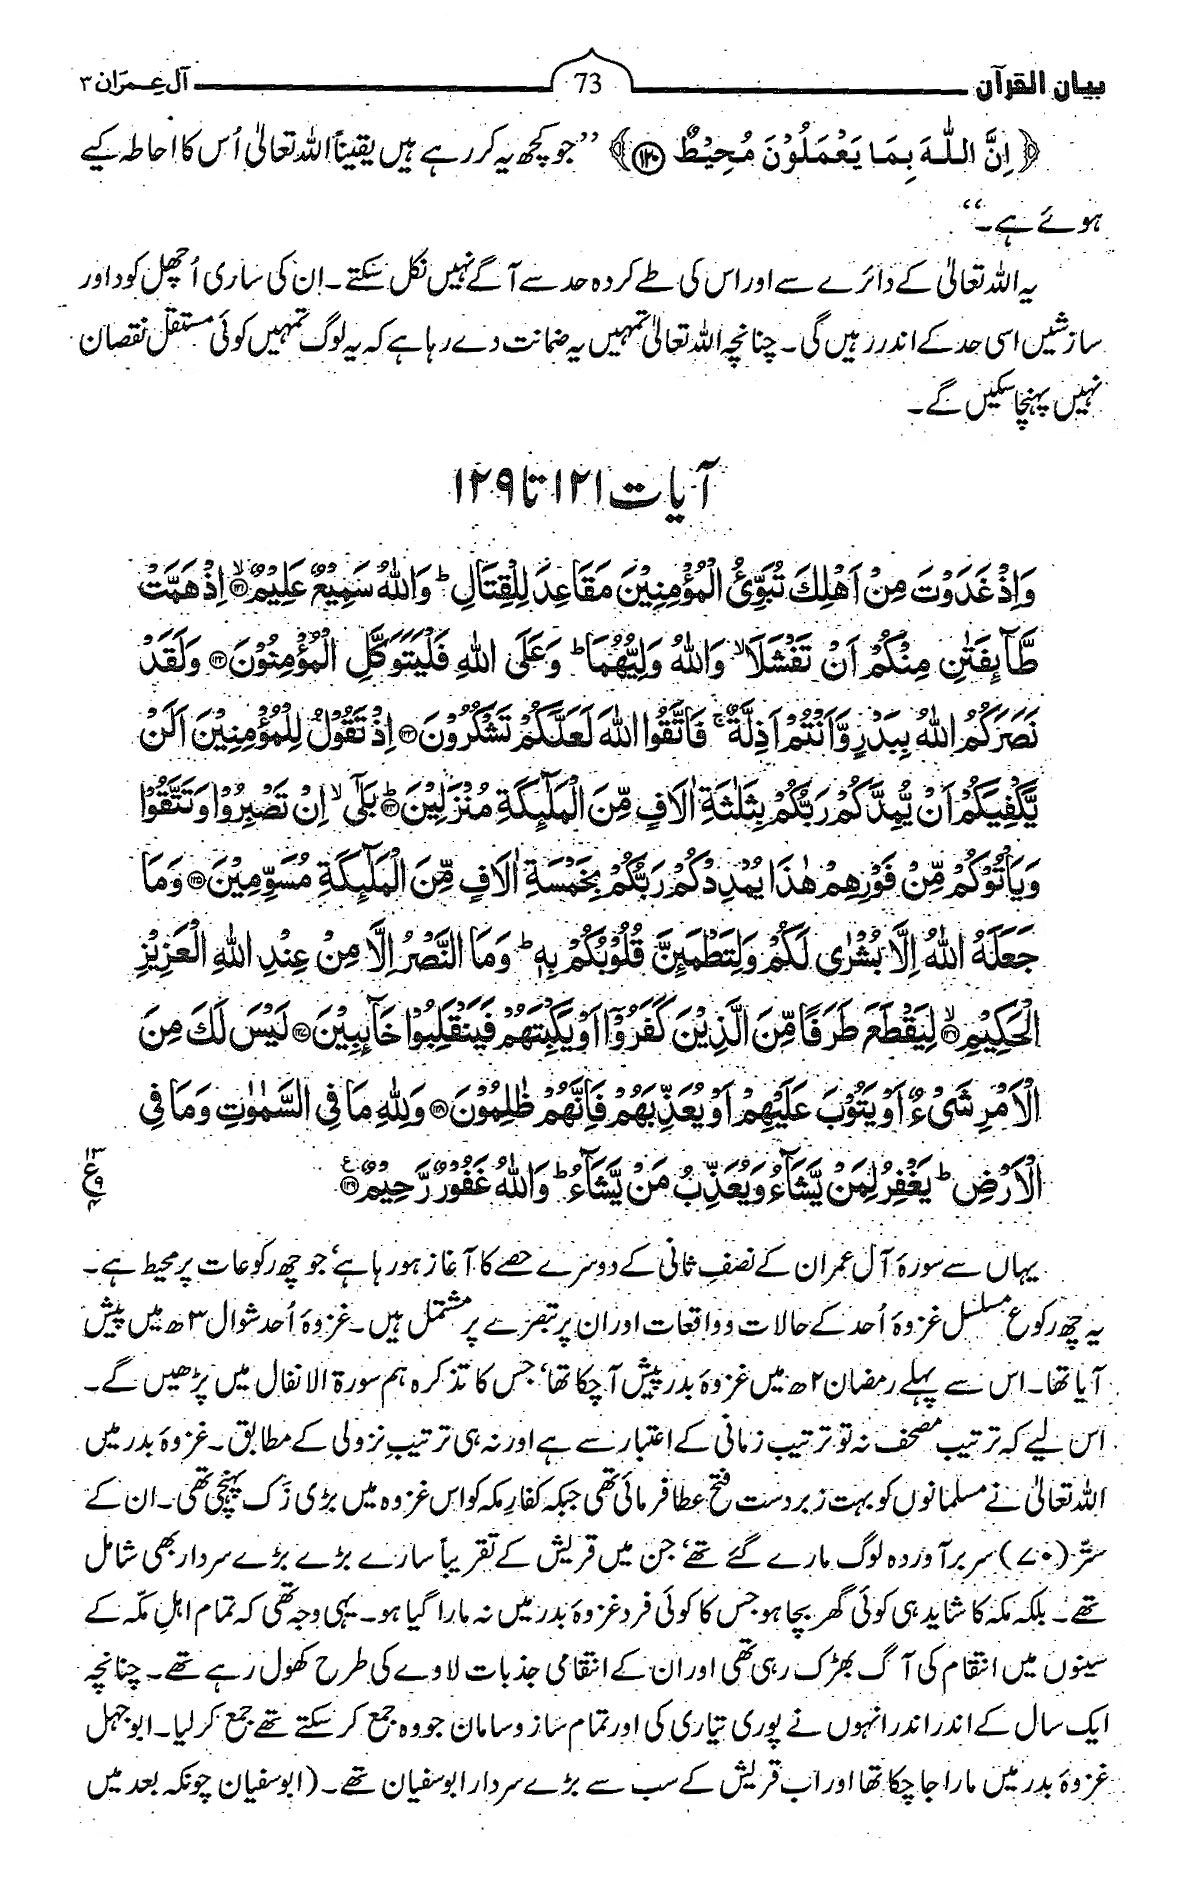 بیان القرآن 73 آل عمران ۳
﴿اِنَّ اللّٰهَ بِمَا يَعْمَلُوْنَ مُحِيْطٌ ﴿۱۲۰﴾﴾ ’’جو کچھ یہ کر رہے ہیں یقیناً اللہ تعالیٰ اُس کا احاطہ کیے
ہوئے ہے۔‘‘
یہ اللہ تعالیٰ کے دائرے سے اور اس کی طے کردہ حد سے آگے نہیں نکل سکتے۔ اِن کی ساری اُچھل کود اور
سازشیں اسی حد کے اندر رہیں گی۔ چنانچہ اللہ تعالیٰ تمہیں یہ ضمانت دے رہا ہے کہ یہ لوگ تمہیں کوئی مستقل نقصان
نہیں پہنچا سکیں گے۔
آیات ۱۲۱ تا ۱۲۹
وَاِذْ غَدَوْتَ مِنْ اَهْلِكَ تُبَوِّئُ الْمُؤْمِنِيْنَ مَقَاعِدَ لِلْقِتَالِ ؕ وَاللّٰهُ سَمِيْعٌ عَلِيْمٌ ۙ﴿۱۲۱﴾ اِذْ هَمَّتْ
طَّآىِٕفَتٰنِ مِنْكُمْ اَنْ تَفْشَلَا ۙ وَاللّٰهُ وَلِيُّهُمَا ؕ وَعَلَى اللّٰهِ فَلْيَتَوَكَّلِ الْمُؤْمِنُوْنَ ﴿۱۲۲﴾ وَلَقَدْ
نَصَرَكُمُ اللّٰهُ بِبَدْرٍ وَّاَنْتُمْ اَذِلَّةٌ ۚ فَاتَّقُوا اللّٰهَ لَعَلَّكُمْ تَشْكُرُوْنَ ﴿۱۲۳﴾ اِذْ تَقُوْلُ لِلْمُؤْمِنِيْنَ اَلَنْ
يَّكْفِيَكُمْ اَنْ يُّمِدَّكُمْ رَبُّكُمْ بِثَلٰثَةِ اٰلَافٍ مِّنَ الْمَلٰٓىِٕكَةِ مُنْزَلِيْنَ ؕ﴿۱۲۴﴾ بَلٰٓى ۙ اِنْ تَصْبِرُوْا وَتَتَّقُوْا
وَيَاْتُوْكُمْ مِّنْ فَوْرِهِمْ هٰذَا يُمْدِدْكُمْ رَبُّكُمْ بِخَمْسَةِ اٰلَافٍ مِّنَ الْمَلٰٓىِٕكَةِ مُسَوِّمِيْنَ ﴿۱۲۵﴾ وَمَا
جَعَلَهُ اللّٰهُ اِلَّا بُشْرٰى لَكُمْ وَلِتَطْمَىِٕنَّ قُلُوْبُكُمْ بِهٖ ؕ وَمَا النَّصْرُ اِلَّا مِنْ عِنْدِ اللّٰهِ الْعَزِيْزِ
الْحَكِيْمِ ۙ﴿۱۲۶﴾ لِيَقْطَعَ طَرَفًا مِّنَ الَّذِيْنَ كَفَرُوْٓا اَوْ يَكْبِتَهُمْ فَيَنْقَلِبُوْا خَآىِٕبِيْنَ ﴿۱۲۷﴾ لَيْسَ لَكَ مِنَ
الْاَمْرِ شَيْءٌ اَوْ يَتُوْبَ عَلَيْهِمْ اَوْ يُعَذِّبَهُمْ فَاِنَّهُمْ ظٰلِمُوْنَ ﴿۱۲۸﴾ وَلِلّٰهِ مَا فِى السَّمٰوٰتِ وَمَا فِى
الْاَرْضِ ؕ يَغْفِرُ لِمَنْ يَّشَآءُ وَيُعَذِّبُ مَنْ يَّشَآءُ ؕ وَاللّٰهُ غَفُوْرٌ رَّحِيْمٌ ﴿۱۲۹﴾ ۱۳ ع ۹ ۴
یہاں سے سورۂ آل عمران کے نصفِ ثانی کے دوسرے حصے کا آغاز ہو رہا ہے‘ جو چھ رکوعات پر محیط ہے۔
یہ چھ رکوع مسلسل غزوۂ اُحد کے حالات و واقعات اور ان پر تبصرے پر مشتمل ہیں۔ غزوۂ اُحد شوال ۳ھ میں پیش
آیا تھا۔ اس سے پہلے رمضان ۲ھ میں غزوۂ بدر پیش آ چکا تھا‘ جس کا تذکرہ ہم سورۃ الانفال میں پڑھیں گے۔
اس لیے کہ ترتیب مصحف نہ تو ترتیب زمانی کے اعتبار سے ہے اور نہ ہی ترتیبِ نزولی کے مطابق۔ غزوۂ بدر میں
اللہ تعالیٰ نے مسلمانوں کو بہت زبردست فتح عطا فرمائی تھی جبکہ کفارِ مکہ کو اس غزوہ میں بڑی زَک پہنچی تھی۔ ان کے
ستّر (۷۰) سربرآوردہ لوگ مارے گئے تھے‘ جن میں قریش کے تقریباً سارے بڑے بڑے سردار بھی شامل
تھے۔ بلکہ مکہ کا شاید ہی کوئی گھر بچا ہو جس کا کوئی فرد غزوۂ بدر میں نہ مارا گیا ہو۔ یہی وجہ تھی کہ تمام اہلِ مکّہ کے
سینوں میں انتقام کی آگ بھڑک رہی تھی اور ان کے انتقامی جذبات لاوے کی طرح کھول رہے تھے۔ چنانچہ
ایک سال کے اندر اندر انہوں نے پوری تیاری کی اور تمام ساز و سامان جو وہ جمع کر سکتے تھے جمع کر لیا۔ ابوجہل
غزوۂ بدر میں مارا جا چکا تھا اور اب قریش کے سب سے بڑے سردار ابوسفیان تھے۔ (ابوسفیان چونکہ بعد میں